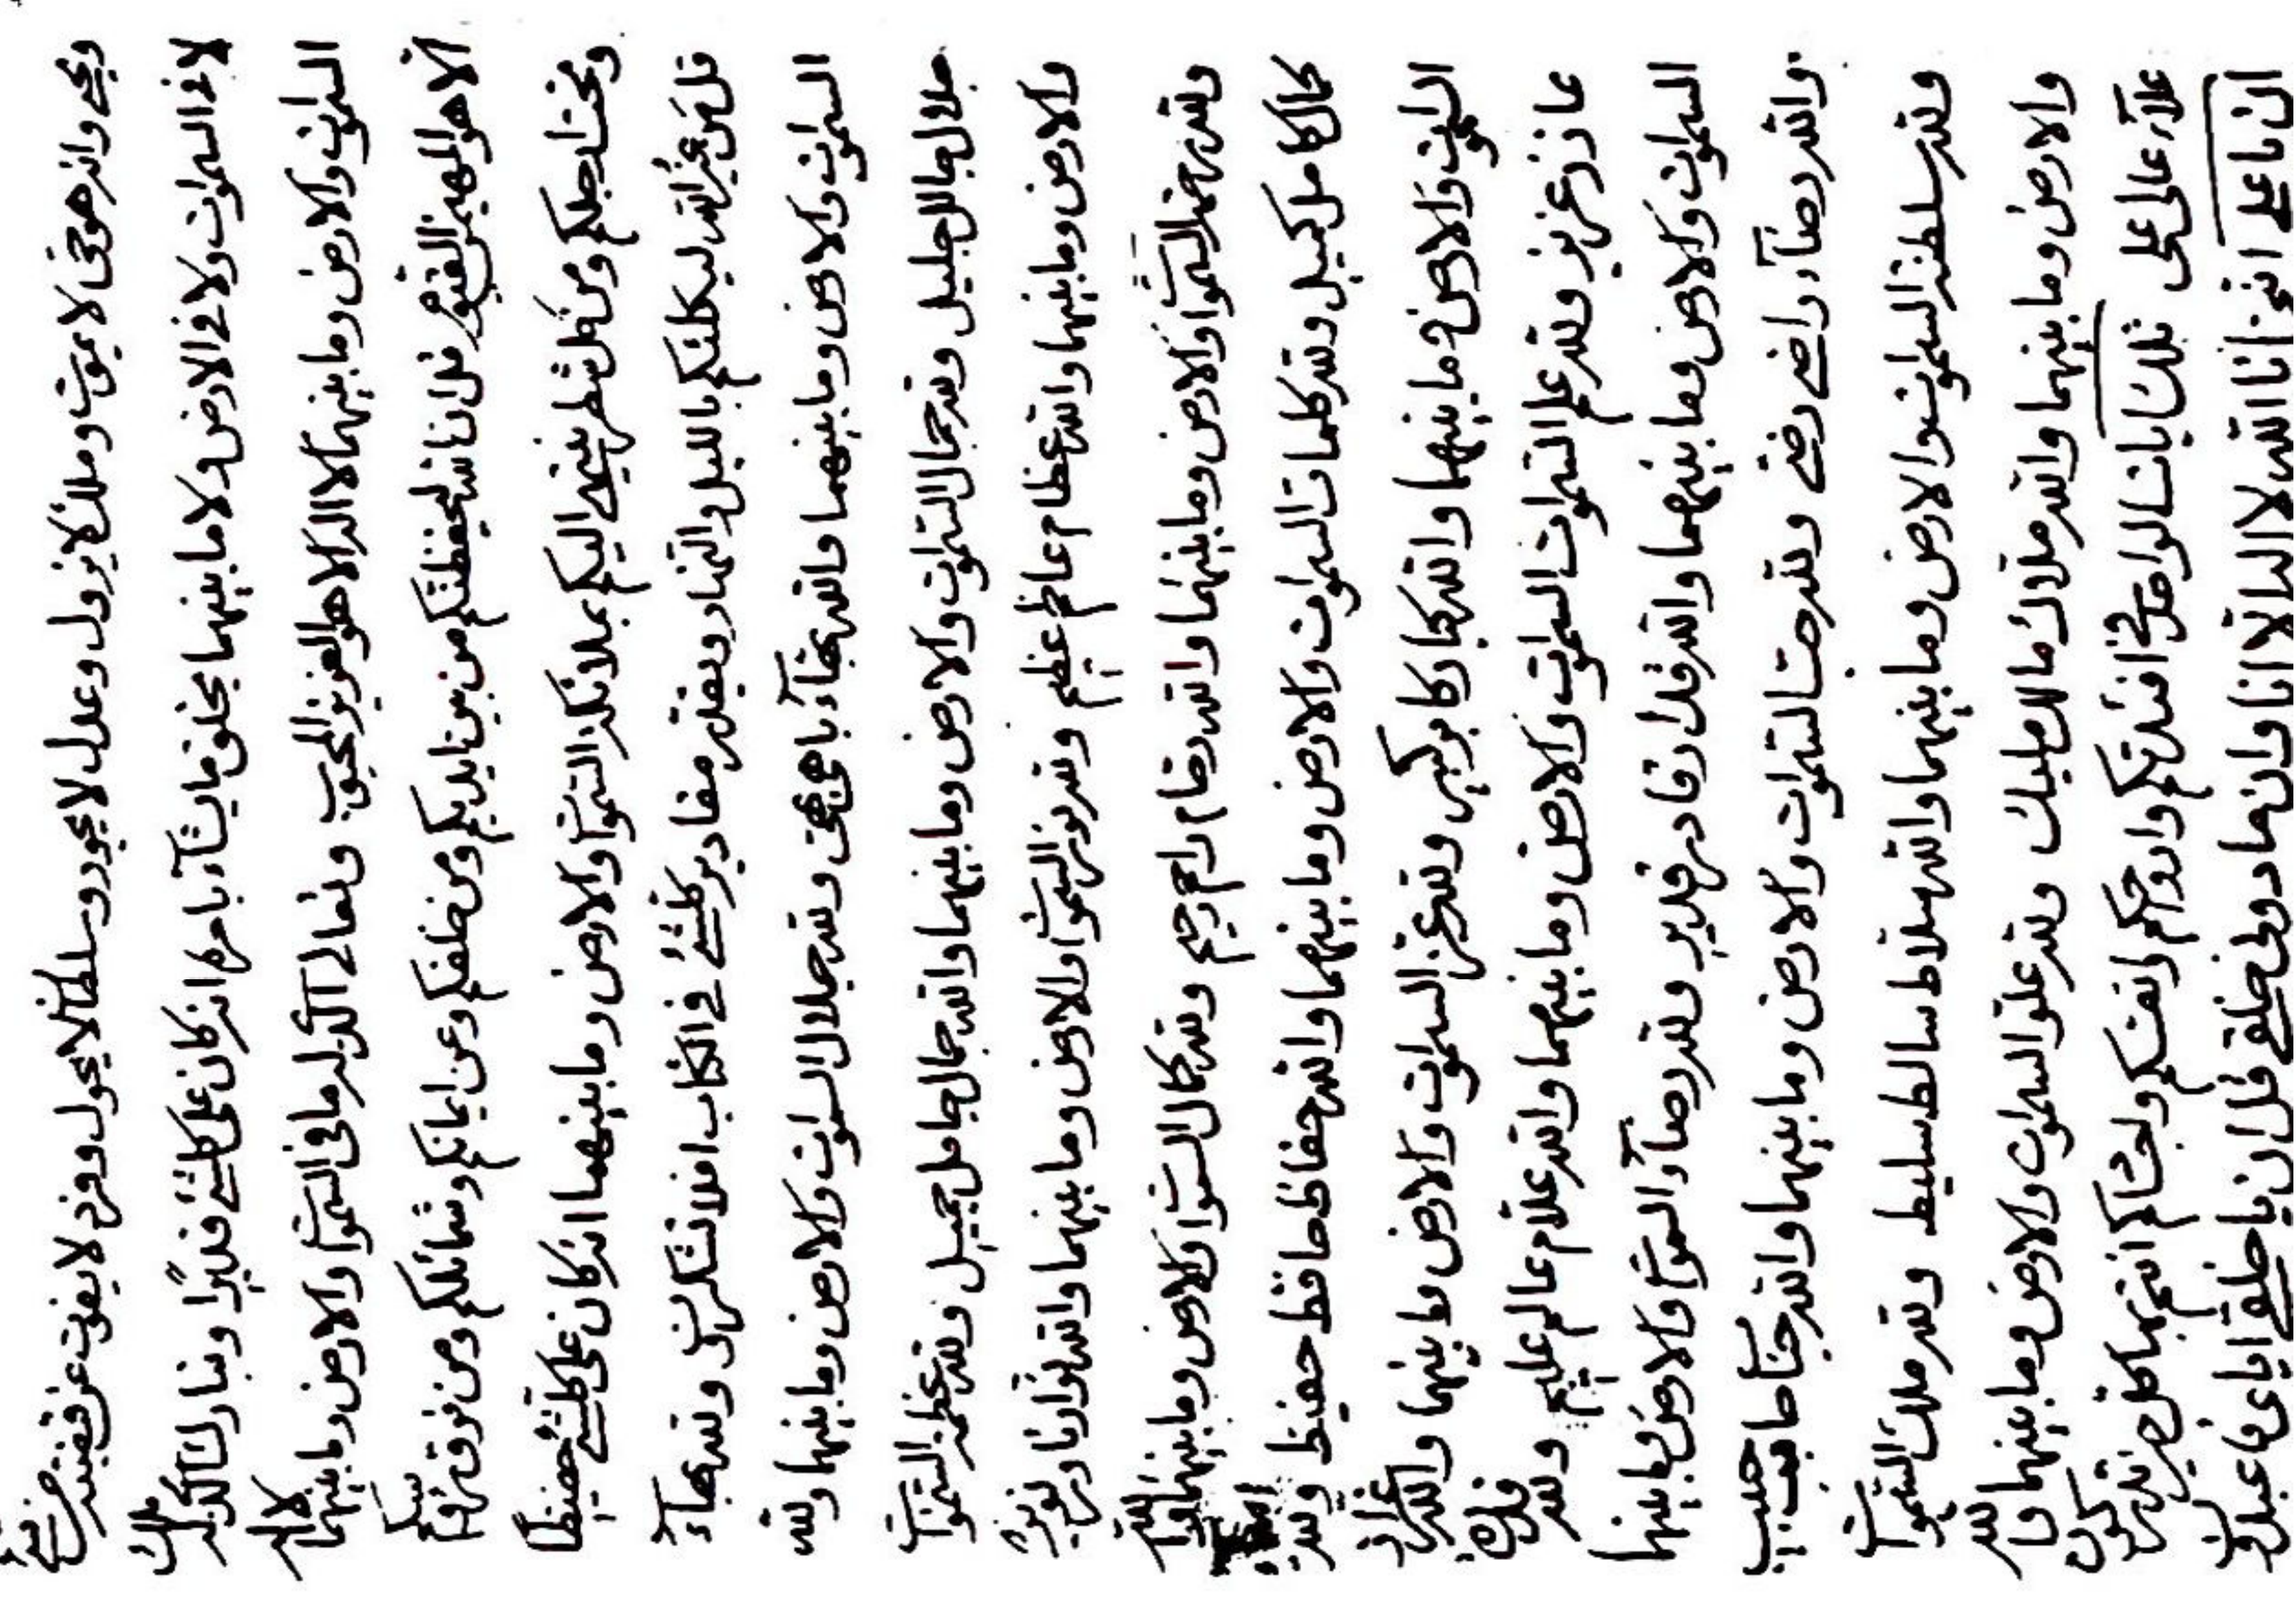 ويحيى وانه هو حى لا يموت وملك لا يزول وعدل لا يجور وسلطان لا يحول وفرد لا يفوت عن قبضته من شئ
لا فى السموات ولا فى الارض ولا ما بينهما يخلق ما يشآء بامره انه كان على كلشئ قديرًا وتبارك الذى له ملك
السموات والارض وما بينهما لا اله الا هو العزيز المحبوب وتعالى الذى له ما فى السموات والارض وما بينهما لا اله
الا هو المهيمن القيوم قل ان الله ليحفظنكم من بين ايديكم ومن خلفكم وعن ايمانكم وشمائلكم ومن فوق رؤسكم
وتحت ارجلكم ومن كل شطر ينتهى اليكم بملائكة السموات والارض وما بينهما انه كان على كلشئ حفيظا
قل من غير الله ليكلئنكم بالليل والنهار ويقدر مقادير كلشئ فى الكتاب افلا تشكرون ولله بهآء
السموات والارض وما بينهما والله بهآء باهى بهى ولله جلال السموات والارض وما بينهما ولله
جلال جالل جليل ولله جمال السموات والارض وما بينهما والله جمال جامل جميل ولله عظمة السموات
والارض وما بينهما والله عظام عاظم عظيم ولله نور السموات والارض وما بينهما والله نوار نار نوير
ولله رحمة السموات والارض وما بينهما والله رحام راحم رحيم ولله كمال السموات والارض وما بينهما والله
كمال كامل كميل ولله كلمات السموات والارض وما بينهما والله حفاظ حافظ حفيظ ولله
السموات والارض وما بينهما والله كبار كابر كبير ولله عزة السموات والارض وما بينهما والله عزاز
عازز عزيز ولله علم السموات السموات والارض وما بينهما والله علام عالم عليم ولله قدرة
السموات والارض وما بينهما والله قدار قادر قدير ولله رضآء السموات والارض وما بينهما
والله رضآء راضى رضى ولله حب السموات والارض وما بينهما والله حباب حابب حبيب
ولله سلطنة السموات والارض وما بينهما والله سلاط سالط سليط ولله ملك السموات
والارض وما بينهما والله ملاك مالك مليك ولله علو السموات والارض وما بينهما والله
علآء عالى على تلك ايات الواحد فى افئدتكم وارواحكم وانفسكم واجسادكم انتم بها كل حين تذكرون
ان يا على اننى انا الله لا اله الا انا وان ما دونى خلقى قل ان يا خلقى اياى فاعبدون